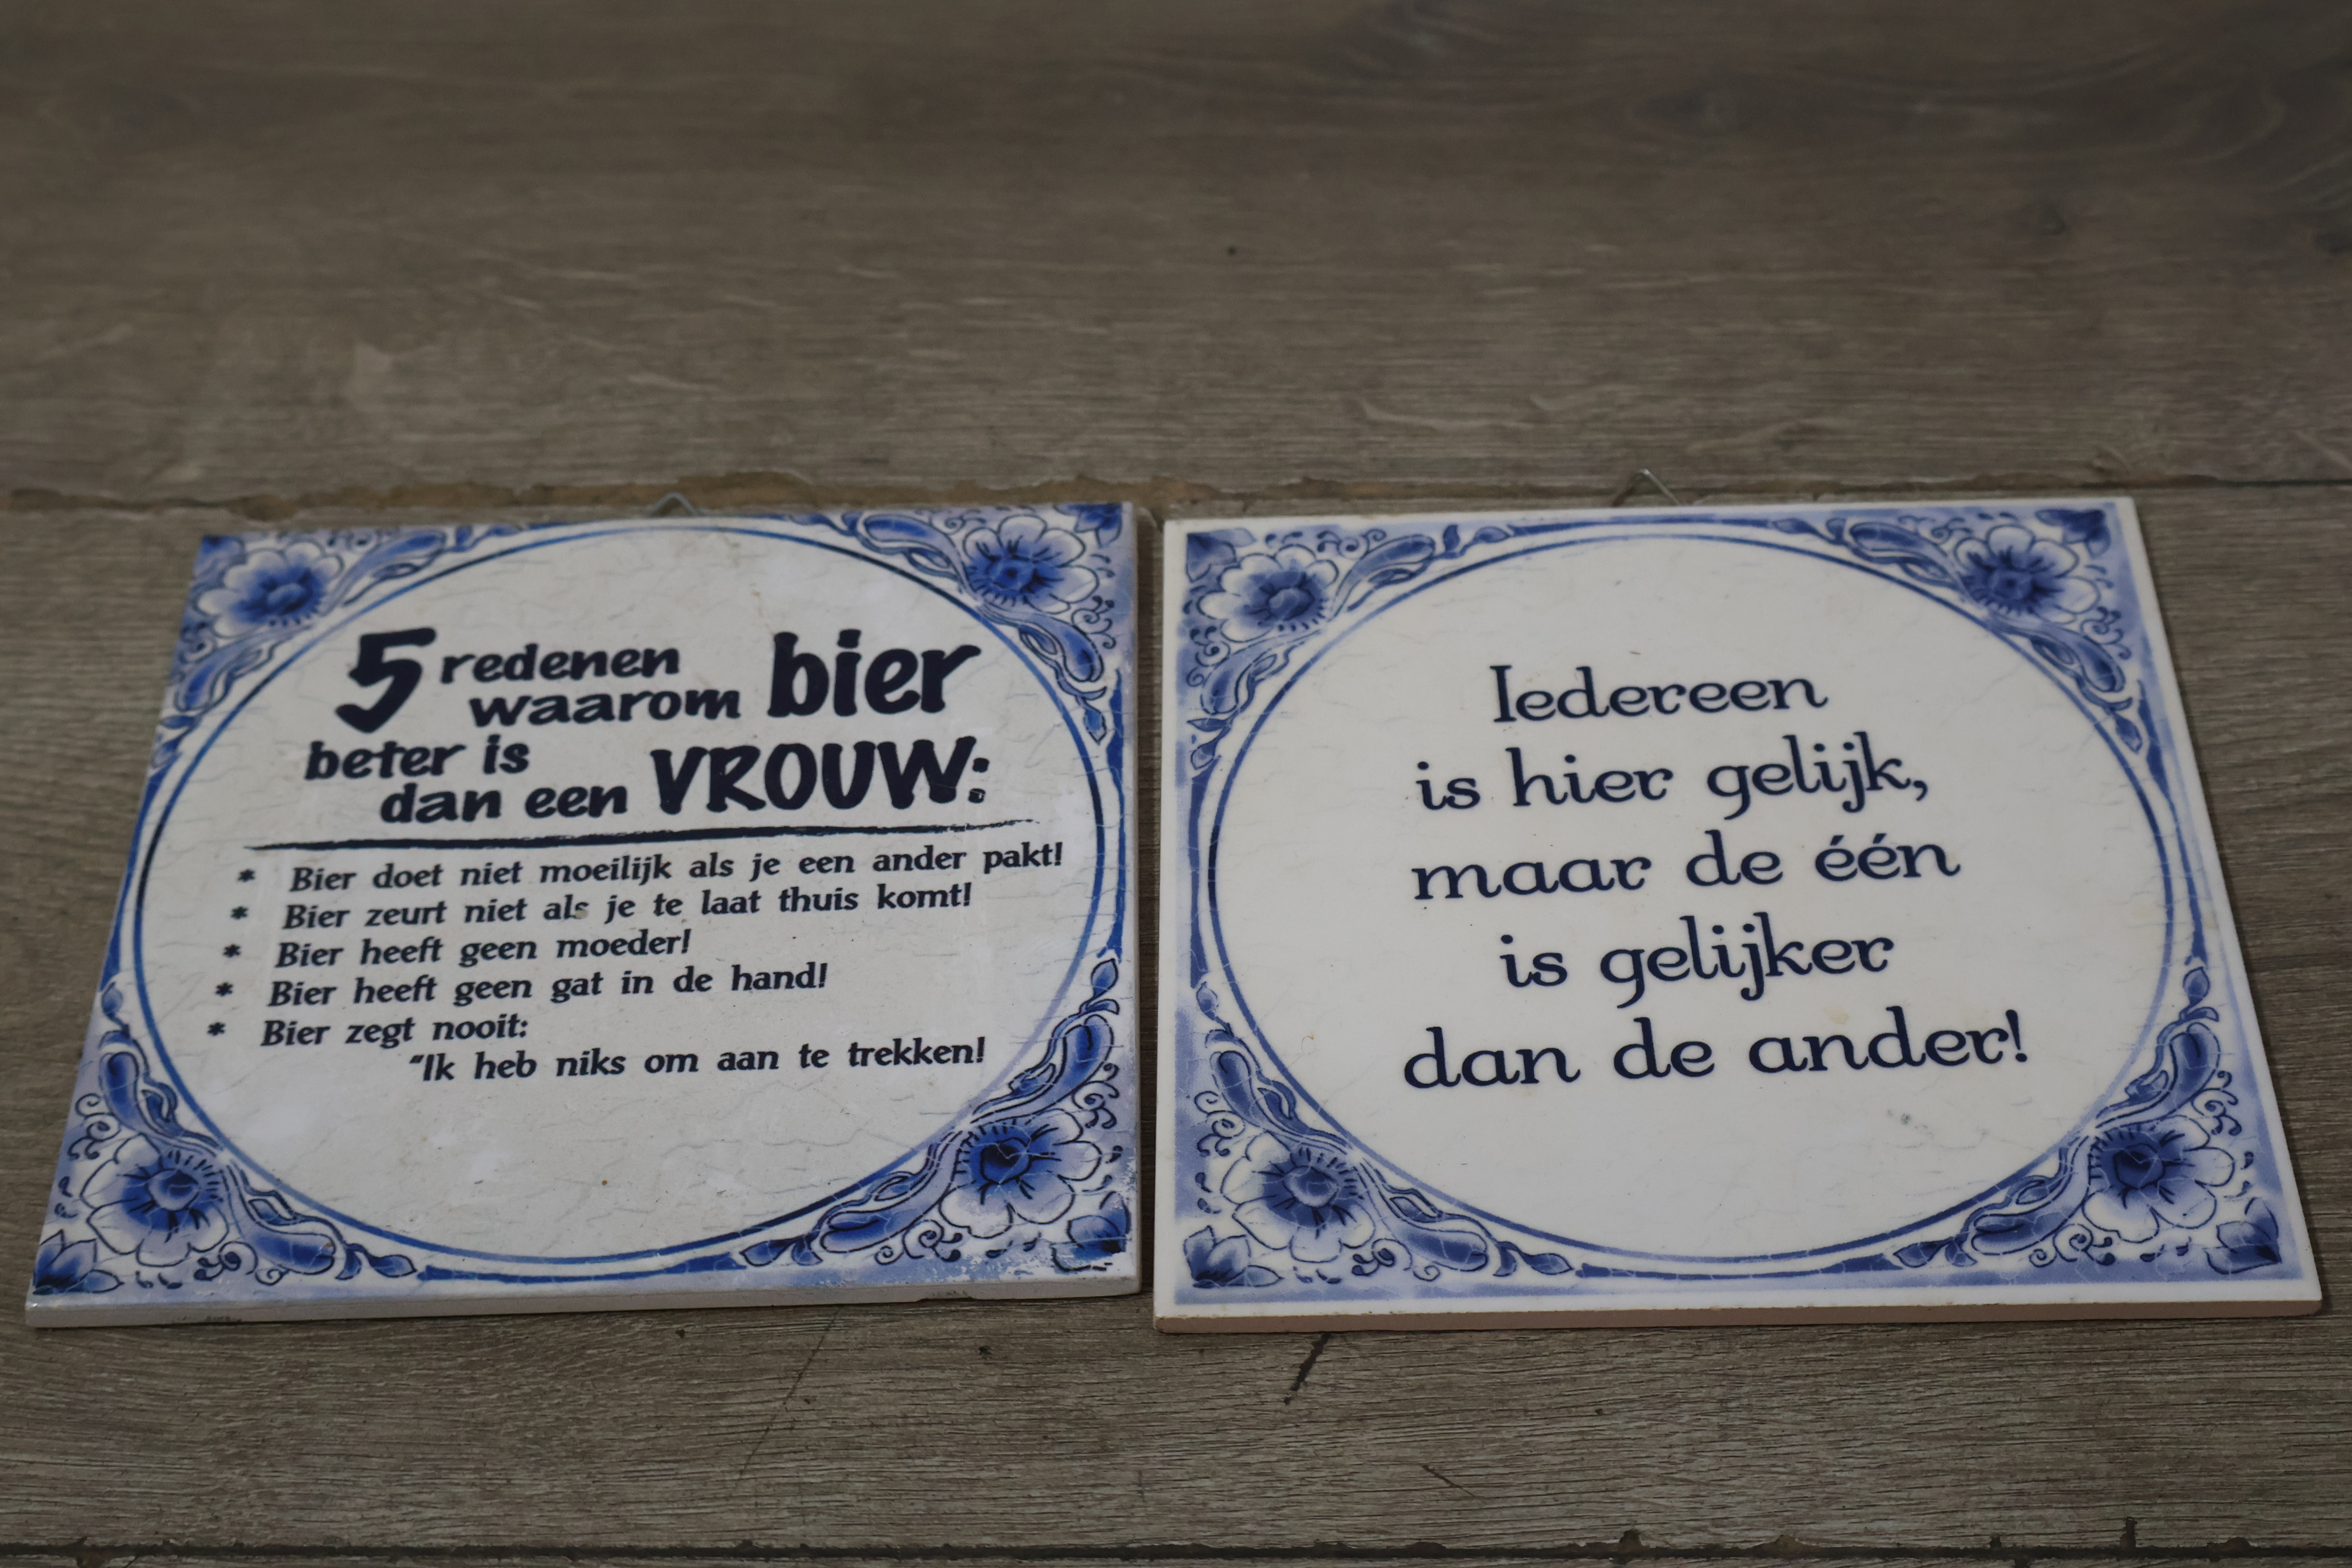 5 redenen
waarom bier
beter is
dan een VROUW:
* Bier doet niet moeilijk als je een ander pakt!
* Bier zeurt niet als je te laat thuis komt!
* Bier heeft geen moeder!
* Bier heeft geen gat in de hand!
* Bier zegt nooit:
"Ik heb niks om aan te trekken!
Iedereen
is hier gelijk,
maar de één
is gelijker
dan de ander!